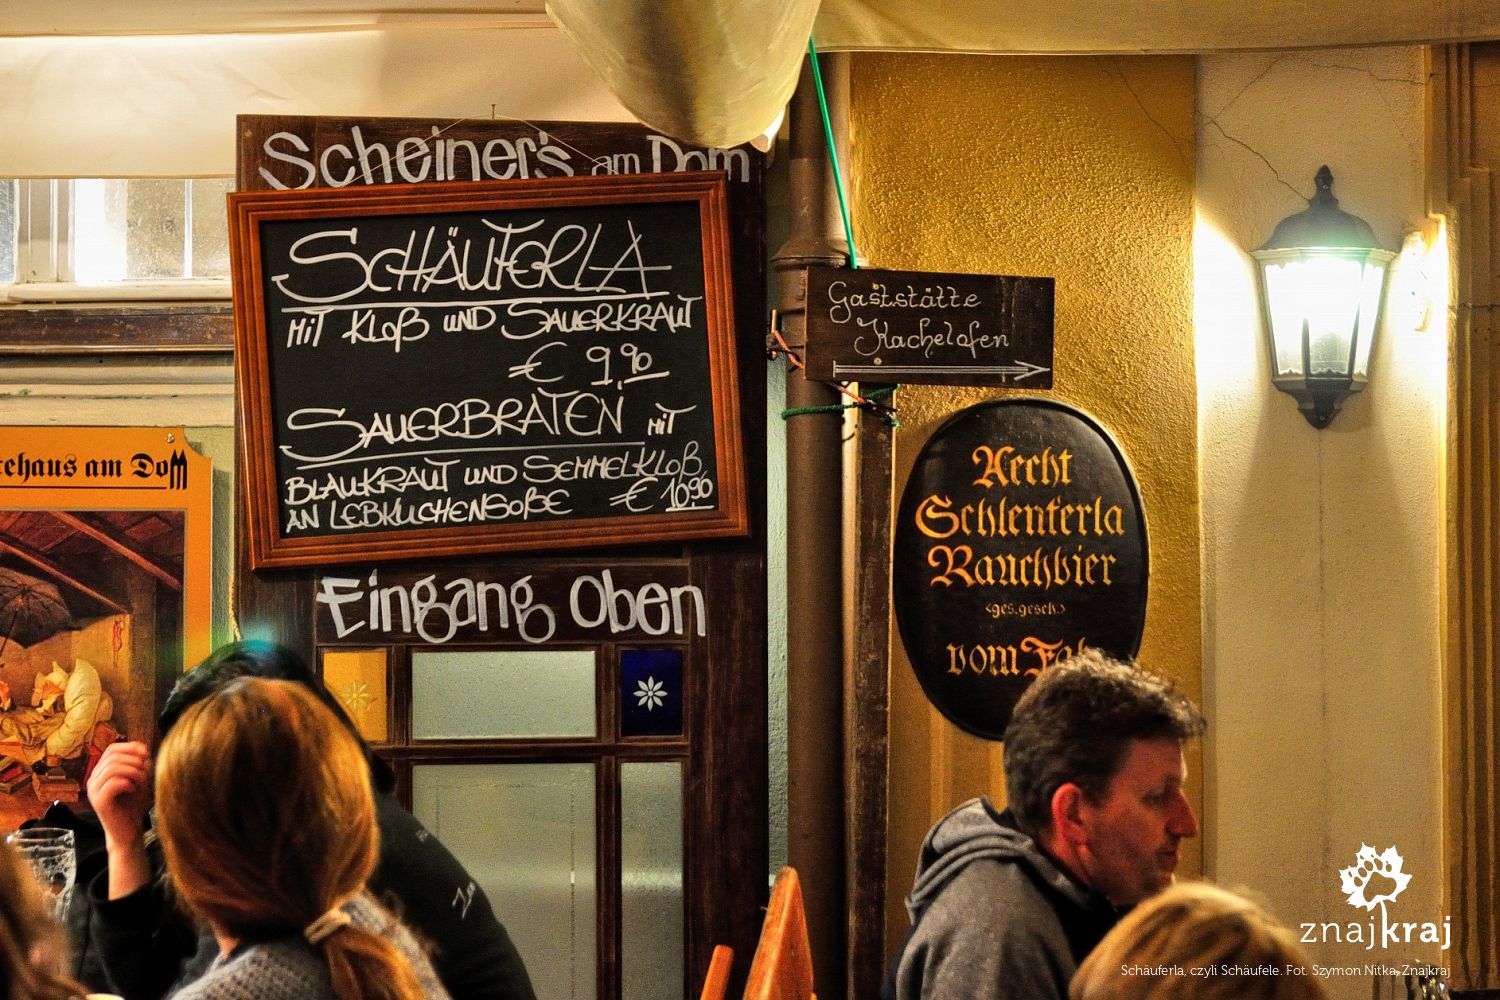 Scheiner's am Dom
SCHÄUFERLA
MIT KLOß UND SAUERKRAUT
€ 9,90
SAUERBRATEN MIT
BLAUKRAUT UND SEMMELKLOß
AN LEBKUCHENSOßE € 10,90
Eingang Oben
am Dom
Gaststätte
Kachelofen
Aecht
Schlenferla
Rauchbier
<ges.gesch.>
vom
znajkraj
Schäuferla, czyli Schäufele. Fot. Szymon Nitka, Znajkraj